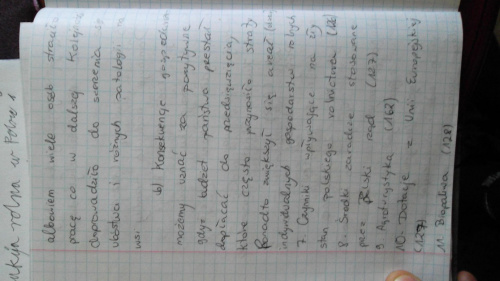 ukcja rolna w Polsce
albowiem wiele osób straciło
pracę co w dalszej kolejności
doprowadziło do szerzenia się
ubóstwa i różnych patologii na
wsi.
b) Konsekwencje gospodarcze
możemy uznać za pozytywne
gdyż budżet państwa przestał
dopłacać do przedsięwzięcia,
które często przynosiło straty.
Ponadto zwiększył się areał
indywidualnych gospodarstw rolnych
7. Czynniki wpływające na
stan polskiego rolnictwa
8. Środki zaradcze stosowane
przez Polski rząd (127)
9. Agroturystyka (162)
10. Dotacje z Unii Europejskiej
(127)
11. Biopaliwa (128)